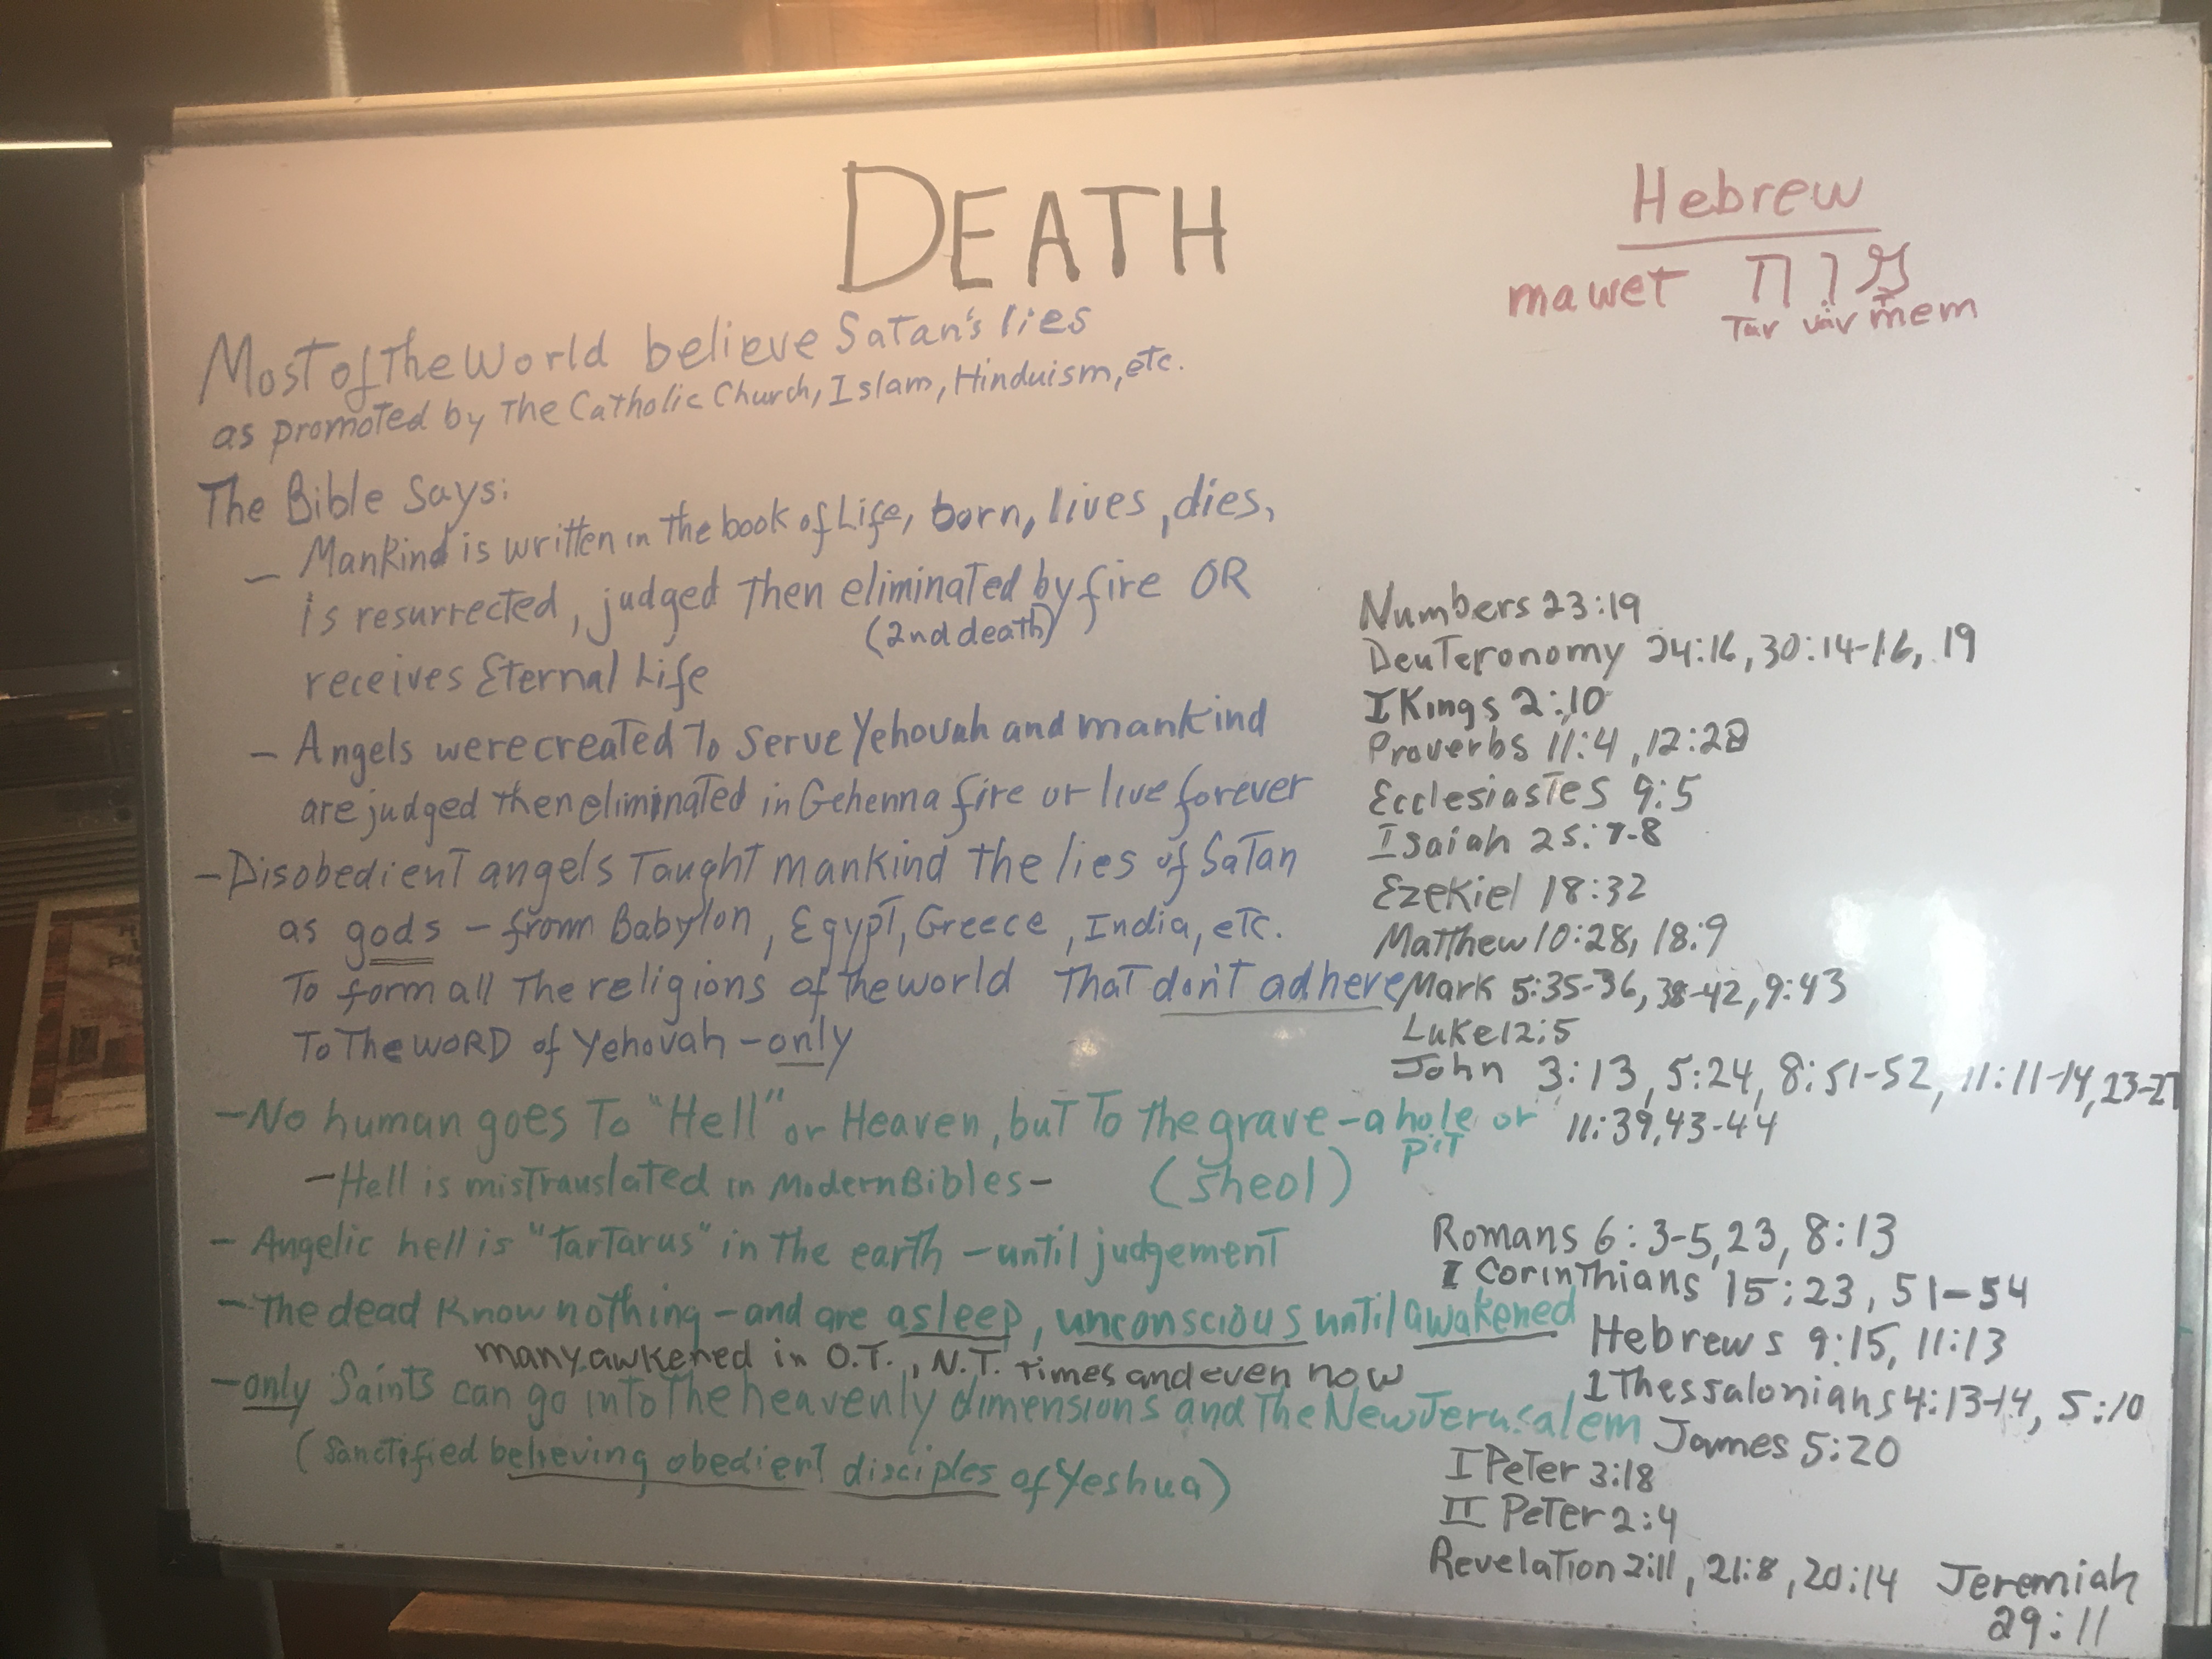 DEATH
Hebrew
mawet מות
Tav vav mem
Most of the World believe Satan's lies
as promoted by the Catholic Church, Islam, Hinduism, etc.
The Bible Says:
- Mankind is written in the book of Life, born, lives, dies,
is resurrected, judged then eliminated by fire OR
(2nd death)
receives Eternal Life
- Angels were created to serve Yehovah and mankind
are judged then eliminated in Gehenna fire or live forever
- Disobedient angels taught mankind the lies of Satan
as gods - from Babylon, Egypt, Greece, India, etc.
To form all the religions of the world that don't adhere
To the WORD of Yehovah - only
- No human goes to "Hell" or Heaven, but to the grave - a hole or
pit
- Hell is mistranslated in Modern Bibles - (sheol)
- Angelic hell is "Tartarus" in the earth - until judgement
- The dead know nothing - and are asleep, unconscious until awakened
many awkened in O.T., N.T. times and even now
- only Saints can go into the heavenly dimensions and the New Jerusalem
(sanctified believing obedient disciples of Yeshua)
Numbers 23:19
Deuteronomy 24:16, 30:14-16, 19
I Kings 2:10
Proverbs 11:4, 12:28
Ecclesiastes 9:5
Isaiah 25:7-8
Ezekiel 18:32
Matthew 10:28, 18:9
Mark 5:35-36, 38-42, 9:43
Luke 12:5
John 3:13, 5:24, 8:51-52, 11:11-14, 23-27
11:39, 43-44
Romans 6:3-5, 23, 8:13
I Corinthians 15:23, 51-54
Hebrews 9:15, 11:13
1 Thessalonians 4:13-14, 5:10
James 5:20
I Peter 3:18
II Peter 2:4
Revelation 2:11, 21:8, 20:14
Jeremiah
29:11